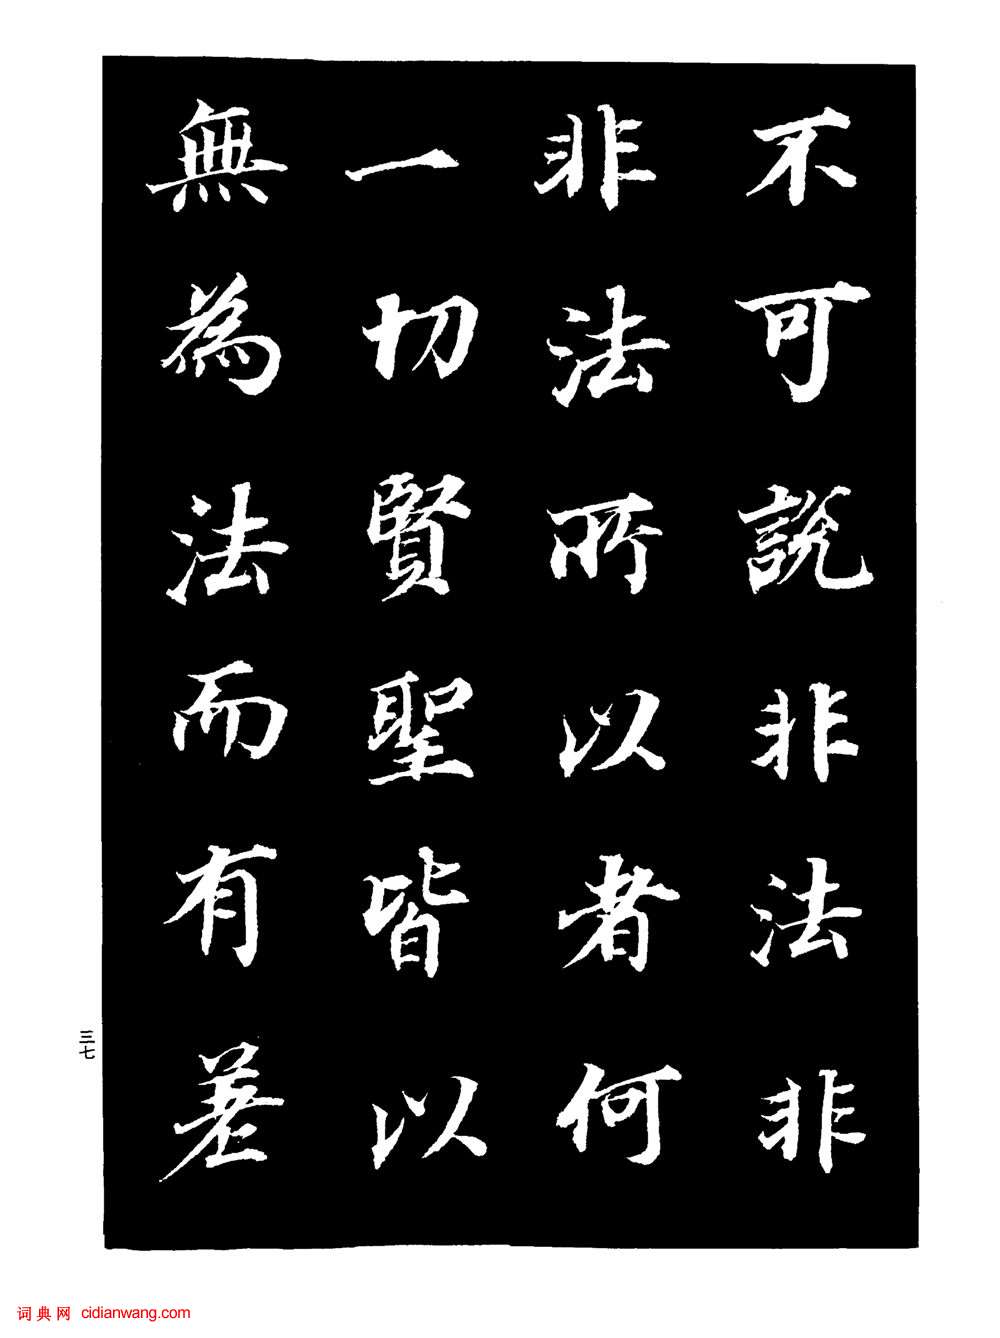 不可說非法非
非法所以者何
一切賢聖皆以
無為法而有差
三七
词典网 cidianwang.com